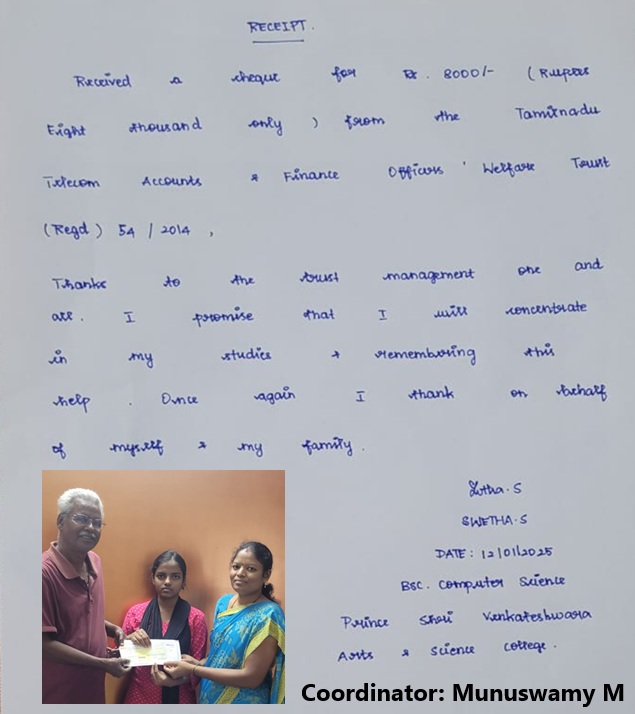 RECEIPT.
Received a cheque for Rs. 8000/- (Rupees
Eight thousand only ) from the Tamilnadu
Telecom Accounts & Finance Officers' Welfare Trust
(Regd) 54 / 2014 ,
Thanks to the trust management one and
all. I promise that I will concentrate
in my studies & remembering this
help. Once again I thank on behalf
of myself & my family.
Swetha.S
SWETHA.S
DATE: 12/01/2025
BSC. Computer Science
Prince Shri Venkateshwara
Arts & Science College.
Coordinator: Munuswamy M